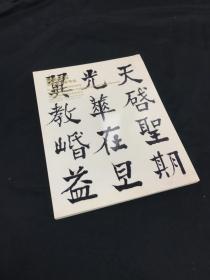 天啓聖期
光華在旦
翼教崏益